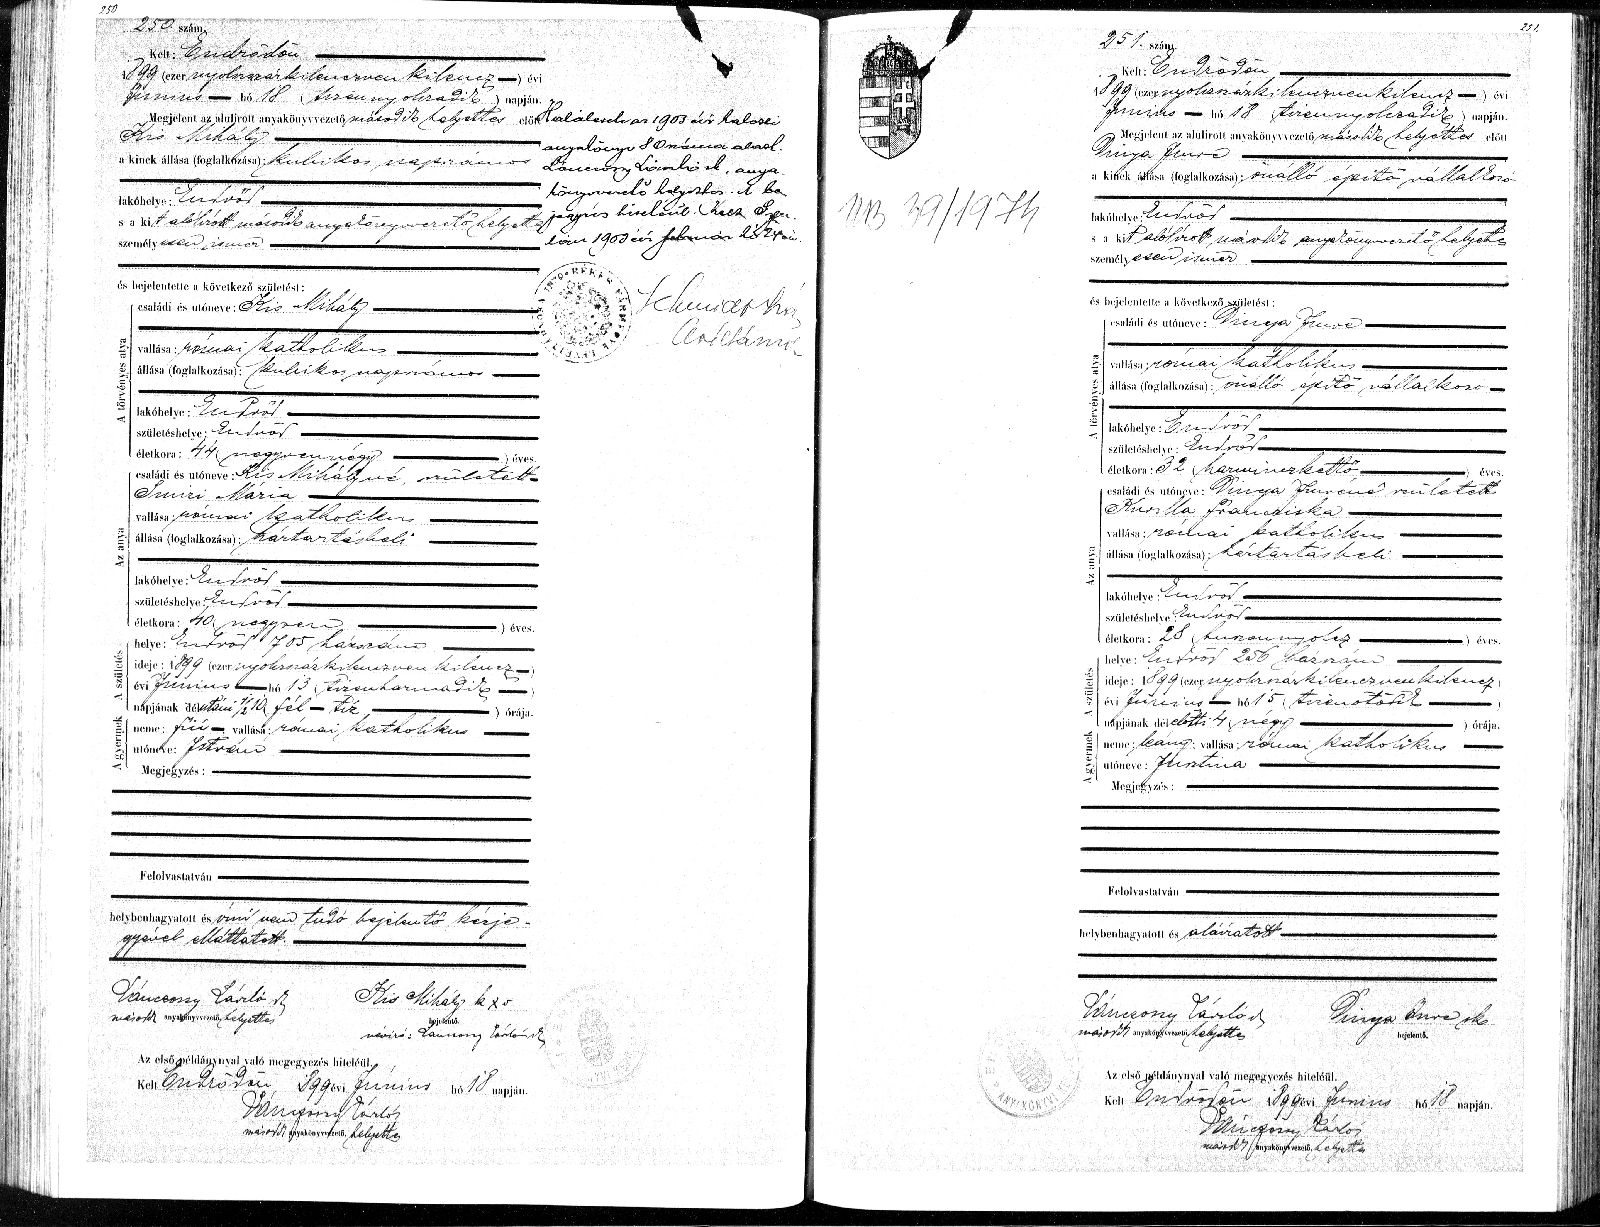 250.
250 szám.
Kelt: Endrődön
1899 (ezer nyolcszázkilenczvenkilencz) évi
Június hó 18 (tizennyolczadik) napján.
Megjelent az alulirott anyakönyvvezető második helyettes előtt
Kis Mihály
a kinek állása (foglalkozása): kubikos napszámos
lakóhelye: Endrőd
s a kit alólirott második anyakönyvvezető helyettes
személyesen ismer
és bejelentette a következő születést:
A törvényes atya
családi és utóneve: Kis Mihály
vallása: római katholikus
állása (foglalkozása): kubikos napszámos
lakóhelye: Endrőd
születéshelye: Endrőd
életkora: 44 negyvennégy ) éves.
Az anya
családi és utóneve: Kis Mihályné, született
Mária
vallása: római katholikus
állása (foglalkozása): háztartásbeli
lakóhelye: Endrőd
születéshelye: Endrőd
életkora: 40 negyven ) éves.
A születés
helye: Endrőd 705 házszám
ideje: 1899 (ezer nyolcszázkilenczvenkilencz )
évi Június hó 13 (tizenharmadik )
napjának délutáni 1/2 10 fél tíz ) órája.
A gyermek
neme: fiú vallása: római katholikus
utóneve: István
Megjegyzés:
Felolvastatván
helybenhagyatott és írni nem tudó bejelentő kézje-
gyével elláttatott.
második anyakönyvvezető helyettes
Kis Mihály k x v
bejelentő.
névíró:
Az első példánynyal való megegyezés hiteléül.
Kelt Endrődön 1899 évi Június hó 18 napján.
második anyakönyvvezető, helyettes
1903 évi halotti
anyakönyv 80 száma alatt.
anya-
könyvvezető helyettes. A be
jegyzés hiteléül.
1903 évi február hó 24-én
251.
251. szám.
Kelt: Endrődön
1899 (ezer nyolcszázkilenczvenkilencz ) évi
Június hó 18 (tizennyolczadik ) napján.
Megjelent az alulirott anyakönyvvezető második helyettes előtt
Dinya Imre
a kinek állása (foglalkozása): önálló építő vállalkozó
lakóhelye: Endrőd
s a kit alólirott második anyakönyvvezető helyettes
személyesen ismer
és bejelentette a következő születést:
A törvényes atya
családi és utóneve: Dinya Imre
vallása: római katholikus
állása (foglalkozása): önálló építő vállalkozó
lakóhelye: Endrőd
születéshelye: Endrőd
életkora: 32 harminczkettő ) éves.
Az anya
családi és utóneve: Dinya Imréné született
Kurilla Franciska
vallása: római katholikus
állása (foglalkozása): háztartásbeli
lakóhelye: Endrőd
születéshelye: Endrőd
életkora: 28 huszonnyolcz ) éves.
A születés
helye: Endrőd 256 házszám
ideje: 1899 (ezer nyolcszázkilenczvenkilencz )
évi Június hó 15 (tizenötödik )
napjának délelőtti 4 négy ) órája.
A gyermek
neme: leány; vallása: római katholikus
utóneve: Jusztina
Megjegyzés:
Felolvastatván
helybenhagyatott és aláiratott
második anyakönyvvezető, helyettes
Dinya Imre sk
bejelentő.
Az első példánynyal való megegyezés hiteléül.
Kelt Endrődön 1899 évi Június hó 18 napján.
második anyakönyvvezető, helyettes
39/1974